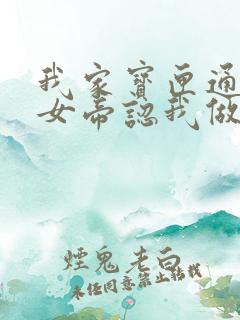 我家寶匣通
女帝認我做
煙鬼老白
未经同意禁止转载